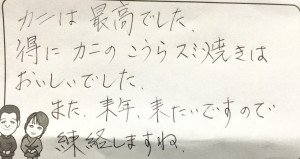 カニは最高でした。
得に カニの こうらスミ焼きは
おいしいでした。
また、来年、来たいですので
練絡しますね。